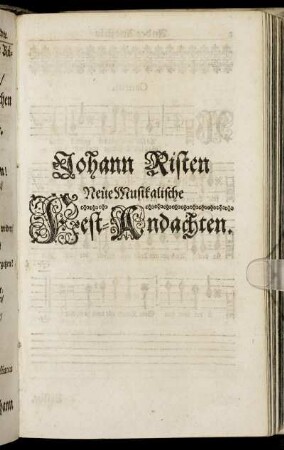 Johann Risten
Neüe Musikalische
Fest-Andachten.